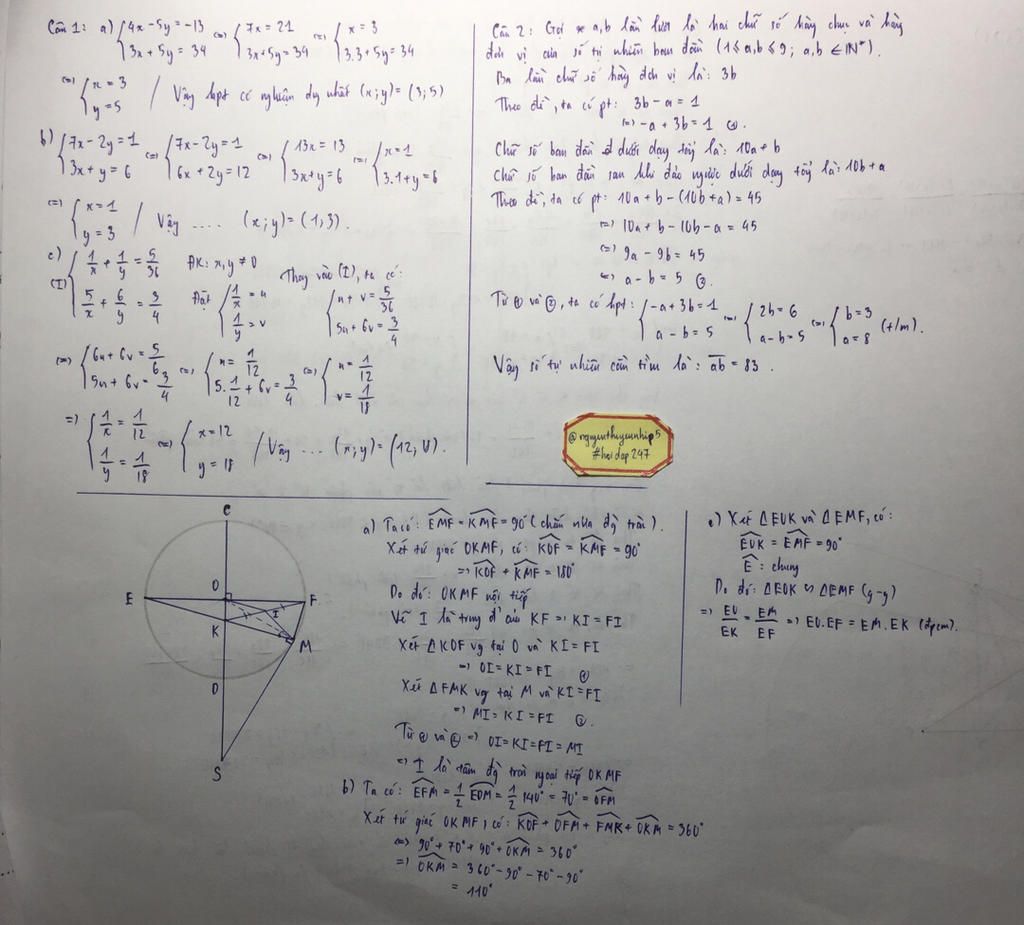 Câu 1: a) { 4x - 5y = -13 ; 3x + 5y = 34 <=> { 7x = 21 ; 3x + 5y = 34 <=> { x = 3 ; 3.3 + 5y = 34
<=> { x = 3 ; y = 5 / Vậy hpt có nghiệm duy nhất (x; y) = (3; 5)
b) { 7x - 2y = 1 ; 3x + y = 6 <=> { 7x - 2y = 1 ; 6x + 2y = 12 <=> { 13x = 13 ; 3x + y = 6 <=> { x = 1 ; 3.1 + y = 6
<=> { x = 1 ; y = 3 / Vậy .... (x; y) = (1; 3).
c) (I) { 1/x + 1/y = 5/36 ; 5/x + 6/y = 3/4 ĐK: x, y ≠ 0
Đặt { 1/x = u ; 1/y = v
Thay vào (I), ta có:
{ u + v = 5/36 ; 5u + 6v = 3/4
<=> { 6u + 6v = 5/6 ; 5u + 6v = 3/4 <=> { u = 1/12 ; 5.1/12 + 6v = 3/4 <=> { u = 1/12 ; v = 1/18
=> { 1/x = 1/12 ; 1/y = 1/18 <=> { x = 12 ; y = 18 / Vậy ... (x; y) = (12; 18).
Câu 2: Gọi a, b lần lượt là hai chữ số hàng chục và hàng
đơn vị của số tự nhiên ban đầu (1 ≤ a, b ≤ 9; a, b ∈ N*).
Ba lần chữ số hàng đơn vị là: 3b
Theo đề, ta có pt: 3b - a = 1
<=> -a + 3b = 1 ①.
Chữ số ban đầu dưới dạng tổng là: 10a + b
Chữ số ban đầu sau khi đảo ngược dưới dạng tổng là: 10b + a
Theo đề, ta có pt: 10a + b - (10b + a) = 45
<=> 10a + b - 10b - a = 45
<=> 9a - 9b = 45
<=> a - b = 5 ②.
Từ ① và ②, ta có hpt: { -a + 3b = 1 ; a - b = 5 <=> { 2b = 6 ; a - b = 5 <=> { b = 3 ; a = 8 (t/m).
Vậy số tự nhiên cần tìm là: ab = 83.
@nguyenthuyennhip5
#hoidap247
C
E
O
F
I
K
M
D
S
a) Ta có: EMF = KMF = 90° (chắn nửa đg tròn).
Xét tứ giác OKMF, có: KOF = KMF = 90°
=> KOF + KMF = 180°
Do đó: OKMF nội tiếp
Vì I là trung đ' của KF => KI = FI
Xét △KOF vg tại O và KI = FI
=> OI = KI = FI ①
Xét △FMK vg tại M và KI = FI
=> MI = KI = FI ②.
Từ ① và ② => OI = KI = FI = MI
=> I là tâm đg tròn ngoại tiếp OKMF
b) Ta có: EFM = 1/2 EOM = 1/2 140° = 70° = OFM
Xét tứ giác OKMF, có: KOF + OFM + FMK + OKM = 360°
<=> 90° + 70° + 90° + OKM = 360°
=> OKM = 360° - 90° - 70° - 90°
= 110°
c) Xét △EOK và △EMF, có:
EOK = EMF = 90°
E: chung
Do đó: △EOK ∽ △EMF (g-g)
=> EO/EK = EM/EF => EO.EF = EM.EK (đpcm).